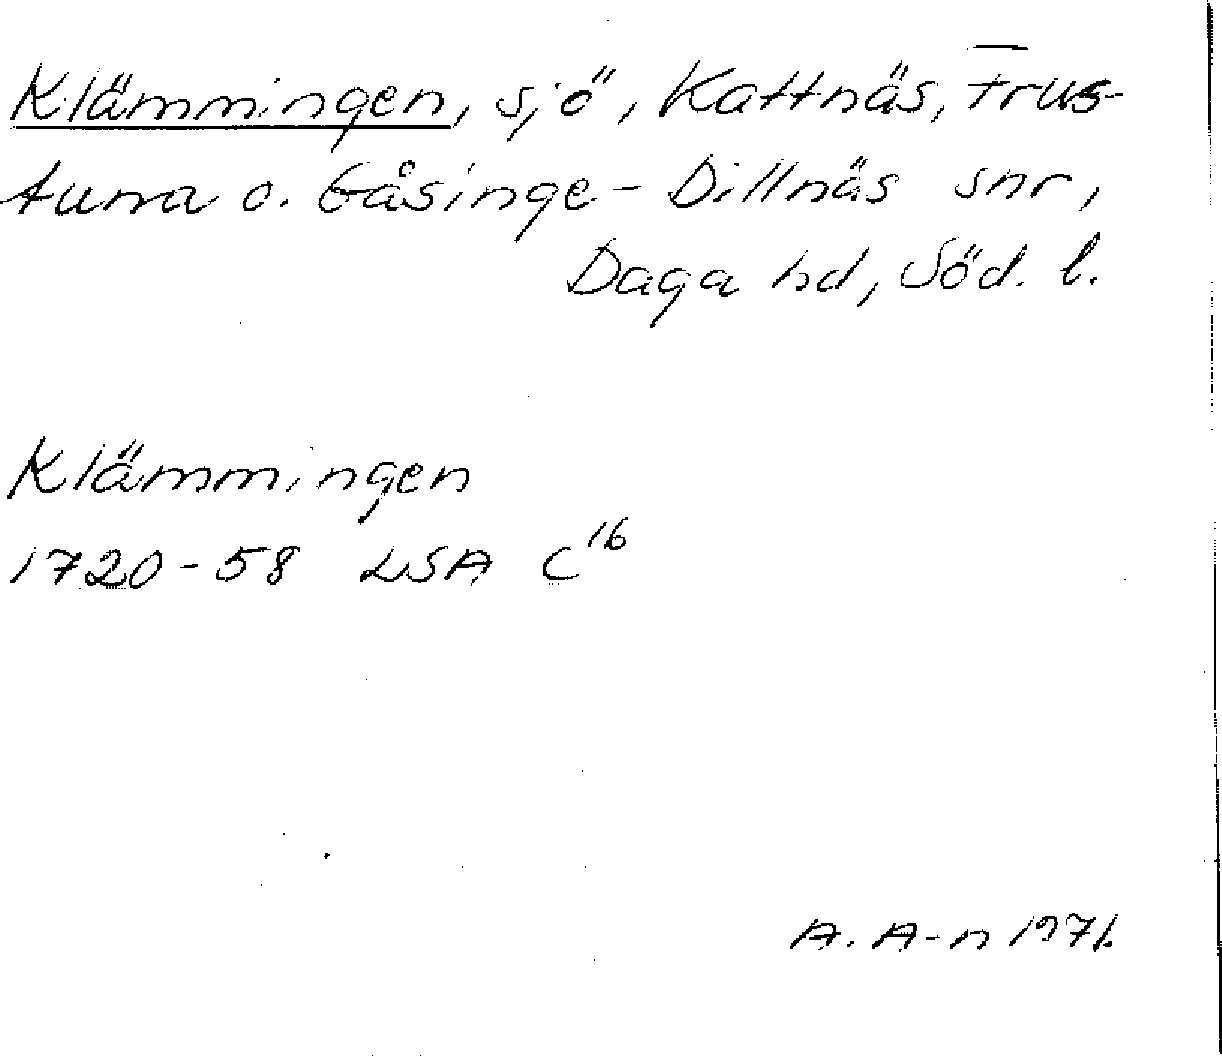 Klämmingen, sjö, Kattnäs, Frus-
tuna o. Gåsinge-Dillnäs snr,
Daga hd, Söd. l.
Klämmingen
1720-58 LSA C¹⁶
A. A-n 1971.